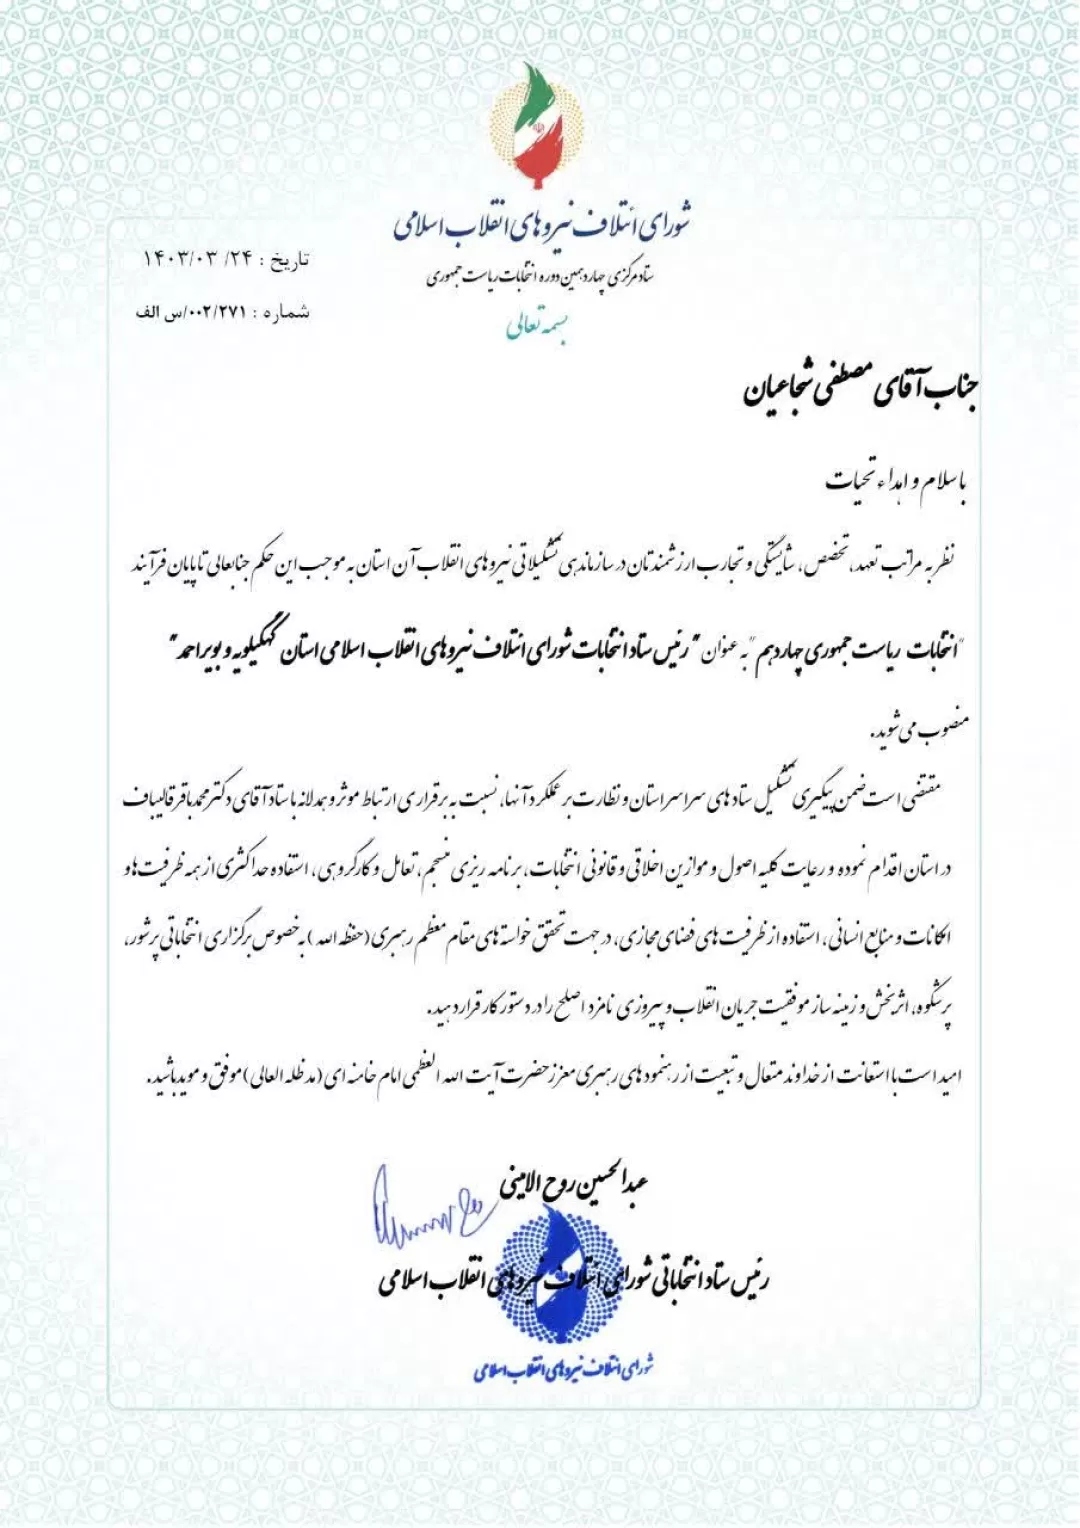 شورای ائتلاف نیروهای انقلاب اسلامی
ستاد مرکزی چهاردهمین دوره انتخابات ریاست جمهوری
تاریخ : ۲۴/ ۱۴۰۳/۰۳
شماره : ۰۰۲/۲۷۱/س الف
بسمه تعالی
جناب آقای مصطفی شجاعیان
با سلام و اهداء تحیات
نظر به مراتب تعهد، تخصص، شایستگی و تجارب ارزشمندتان در سازماندهی تشکیلاتی نیروهای انقلاب آن استان به موجب این حکم جنابعالی تا پایان فرآیند
"انتخابات ریاست جمهوری چهاردهم" به عنوان "رئیس ستاد انتخابات شورای ائتلاف نیروهای انقلاب اسلامی استان کهگیلویه و بویراحمد"
منصوب می شوید.
مقتضی است ضمن پیگیری تشکیل ستادهای سراسر استان و نظارت بر عملکرد آنها، نسبت به برقراری ارتباط موثر و همدلانه با ستاد آقای دکتر محمدباقر قالیباف
در استان اقدام نموده و رعایت کلیه اصول و موازین اخلاقی و قانونی انتخابات، برنامه ریزی منسجم، تعامل و کار گروهی، استفاده حداکثری از همه ظرفیت ها و
امکانات و منابع انسانی، استفاده از ظرفیت های فضای مجازی، در جهت تحقق خواسته های مقام معظم رهبری (حفظه الله) به خصوص برگزاری انتخاباتی پرشور،
پرشکوه، اثربخش و زمینه ساز موفقیت جریان انقلاب و پیروزی نامزد اصلح را در دستور کار قرار دهید.
امید است با استعانت از خداوند متعال و تبعیت از رهنمودهای رهبری معزز حضرت آیت الله العظمی امام خامنه ای (مدظله العالی) موفق و موید باشید.
عبدالحسین روح الامینی
رئیس ستاد انتخاباتی شورای ائتلاف نیروهای انقلاب اسلامی
شورای ائتلاف نیروهای انقلاب اسلامی